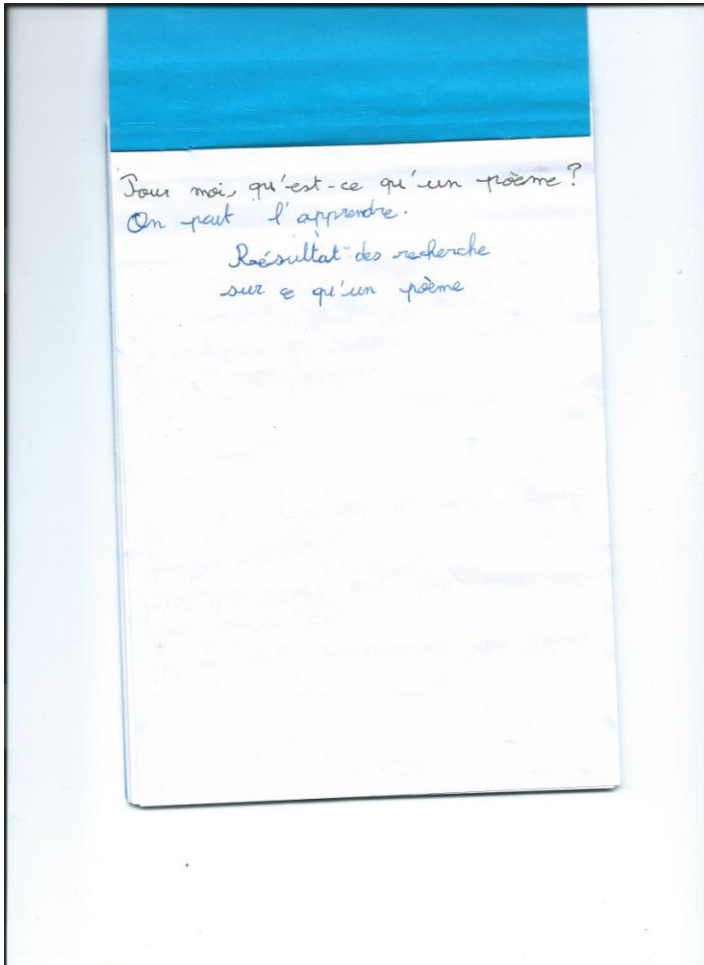 Pour moi, qu'est-ce qu'un poème ?
On peut l'apprendre.
Résultat des recherche
sur ce qu'un poème